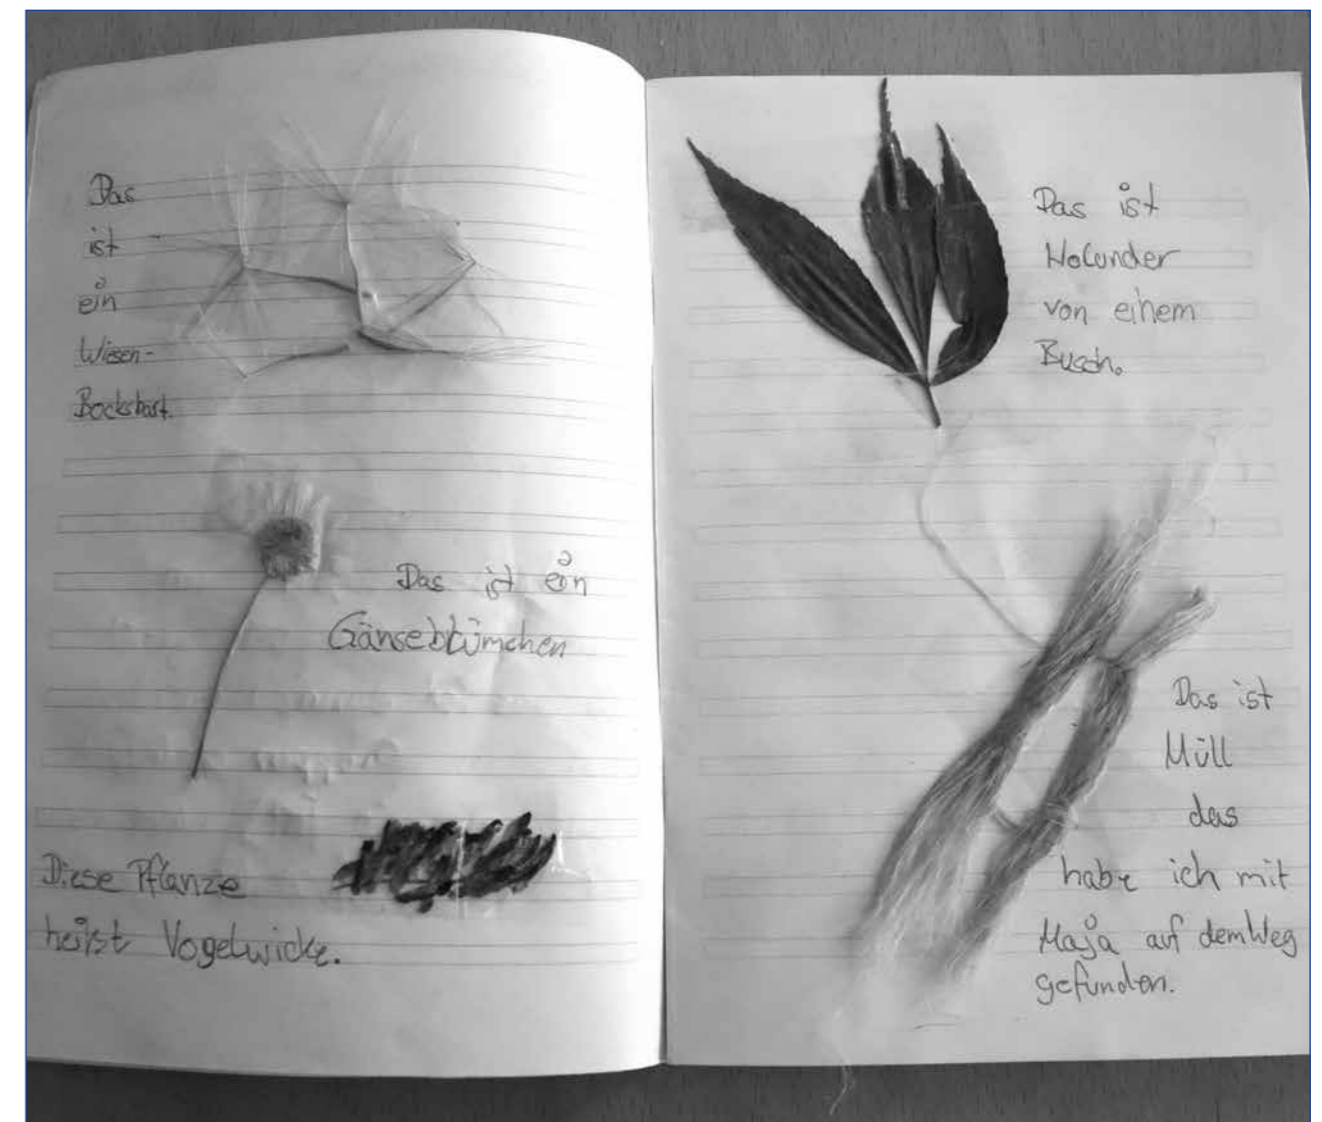 Das
ist
ein
Wiesen-
Bocksbart.
Das ist ein
Gänseblümchen
Diese Pflanze
heißt Vogelwicke.
Das ist
Holunder
von einem
Busch.
Das ist
Müll
das
habe ich mit
Maja auf dem Weg
gefunden.